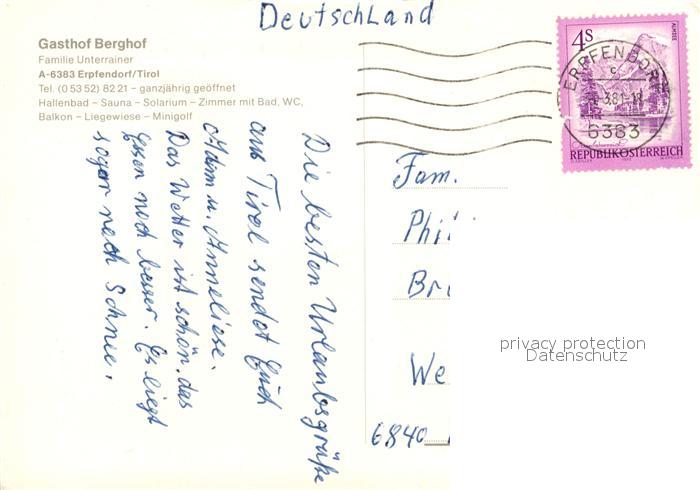 Deutschland
Gasthof Berghof
Familie Unterrainer
A-6383 Erpfendorf/Tirol
Tel. (0 53 52) 82 21 – ganzjährig geöffnet
Hallenbad – Sauna – Solarium – Zimmer mit Bad, WC,
Balkon – Liegewiese – Minigolf
Die besten Urlaubsgrüße
aus Tirol sendet Euch
Adam u. Anneliese.
Das Wetter ist schön, das
Essen noch besser. Es liegt
sogar noch Schnee.
4S
ALMSEE
ERPFENDORF
c
6383
REPUBLIK ÖSTERREICH
Fam.
Phil
Br
We
6840
privacy protection
Datenschutz